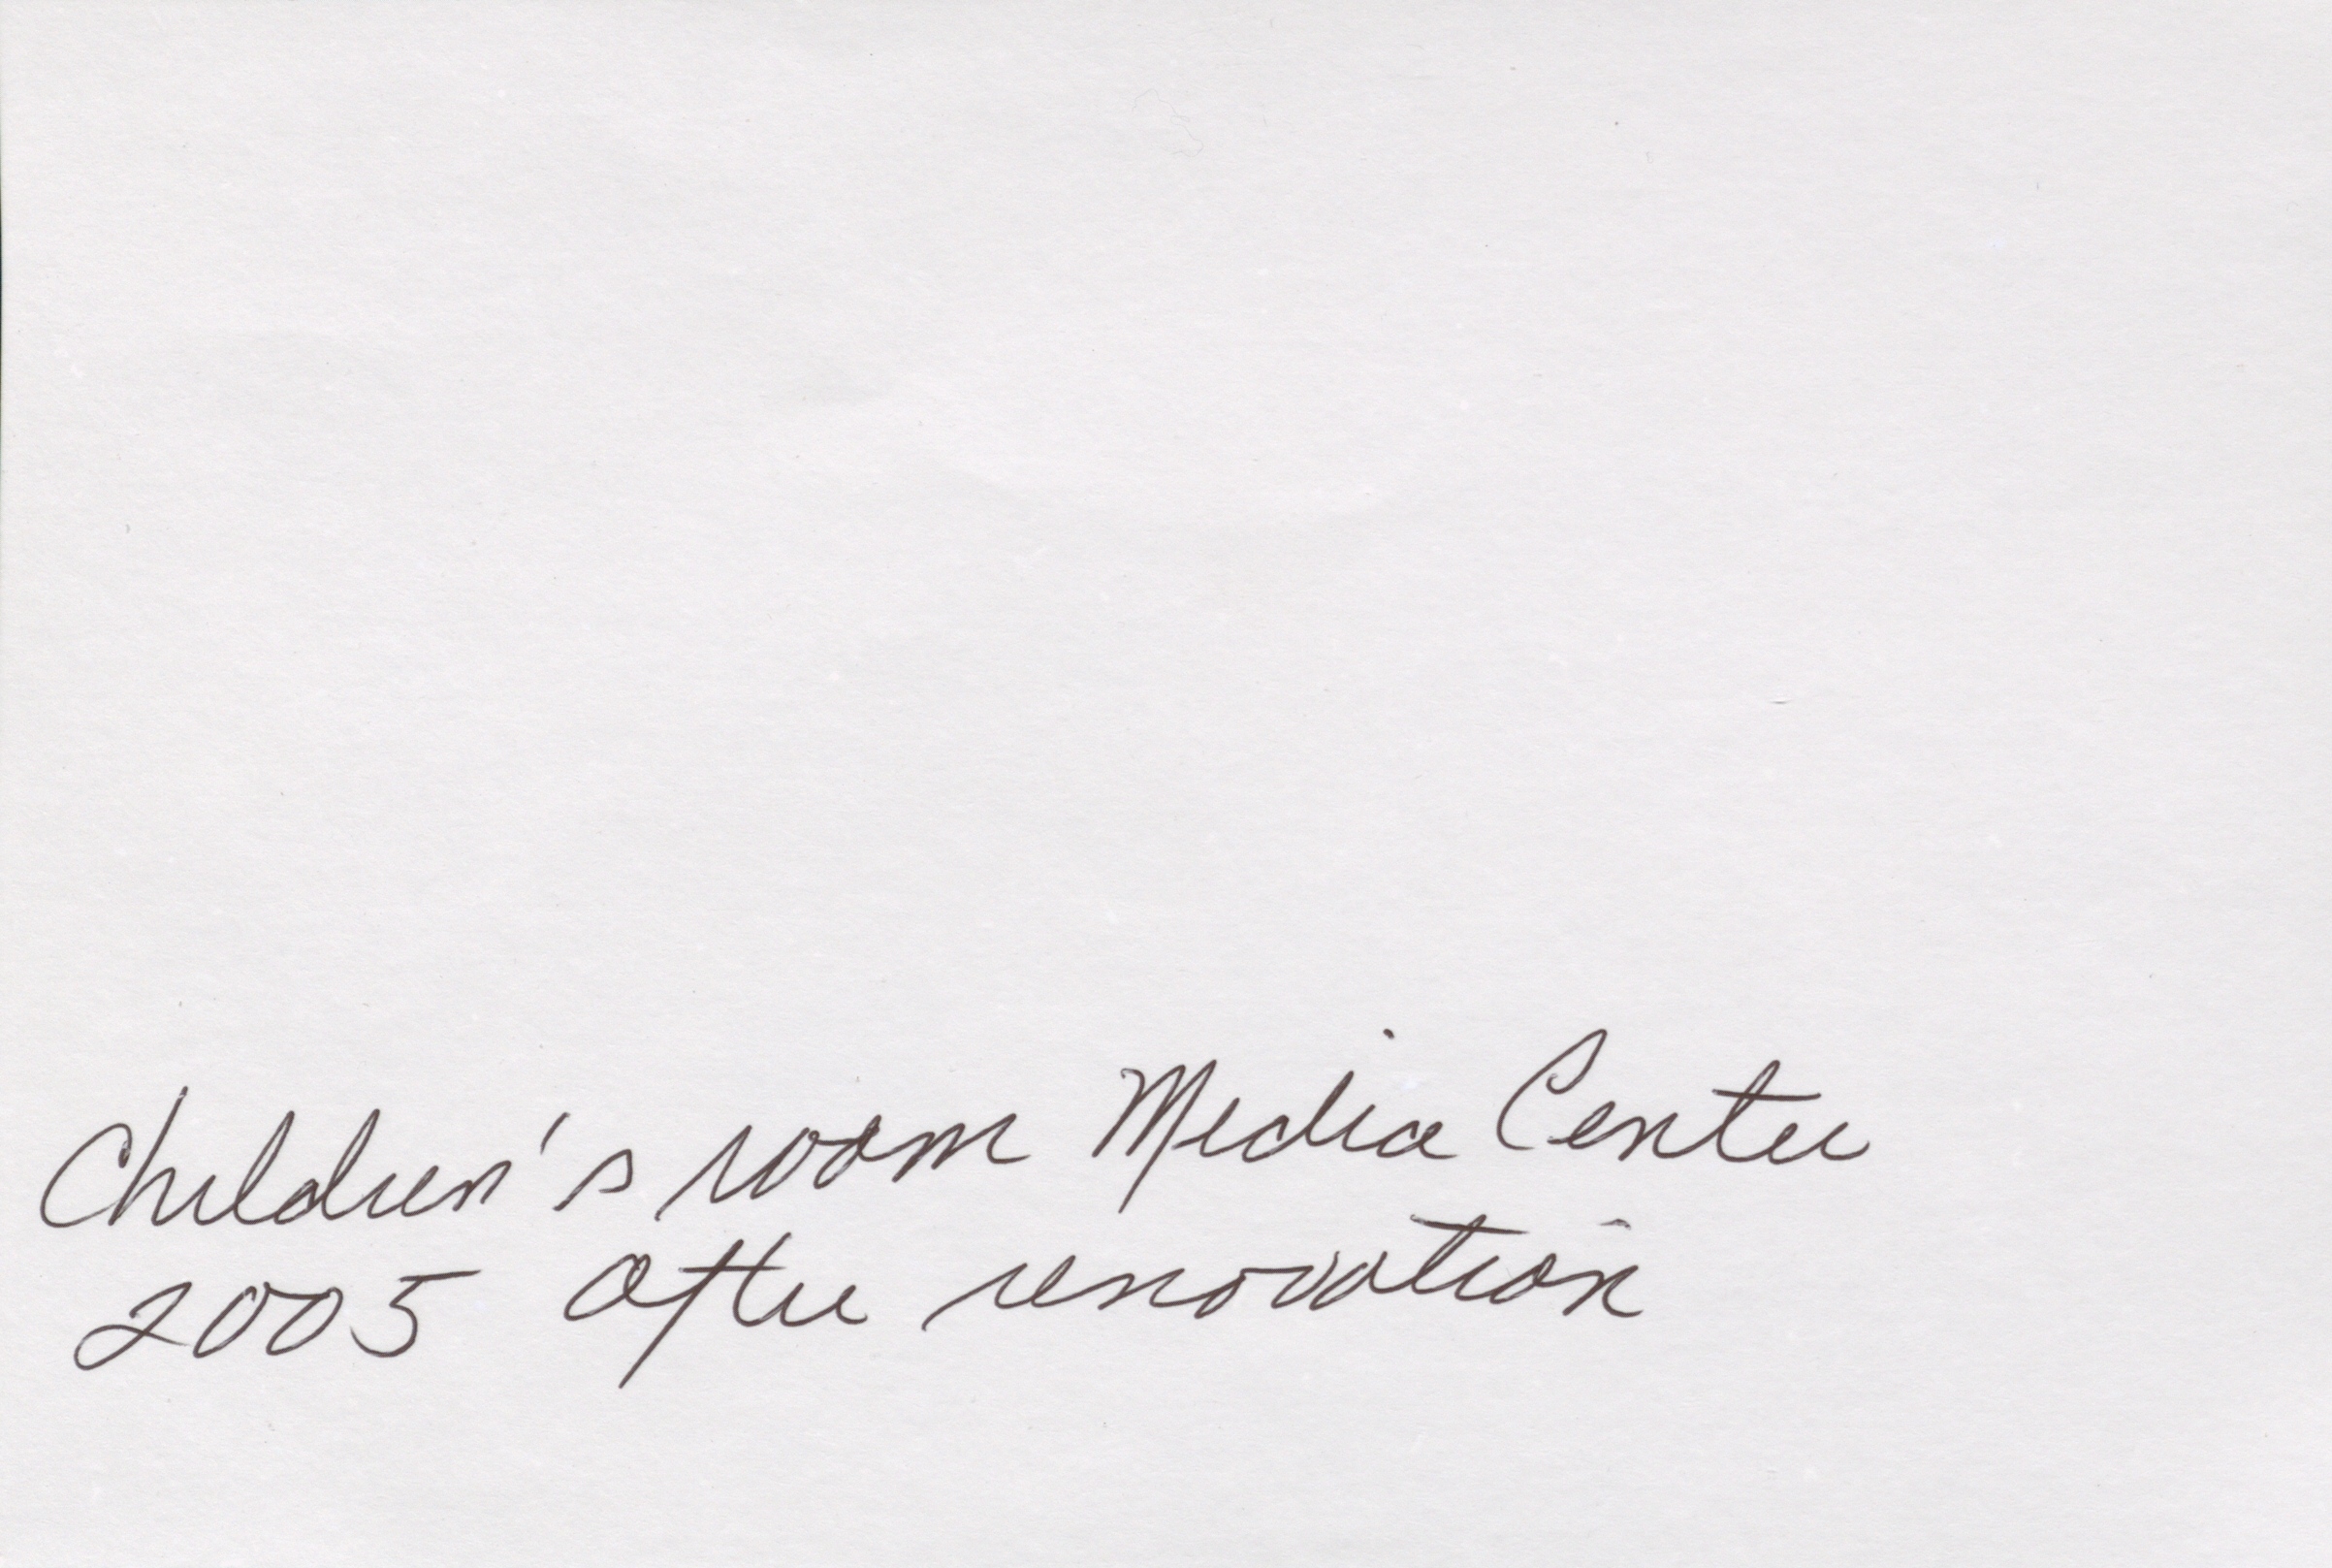 Children's room Media Center
2005 after renovation